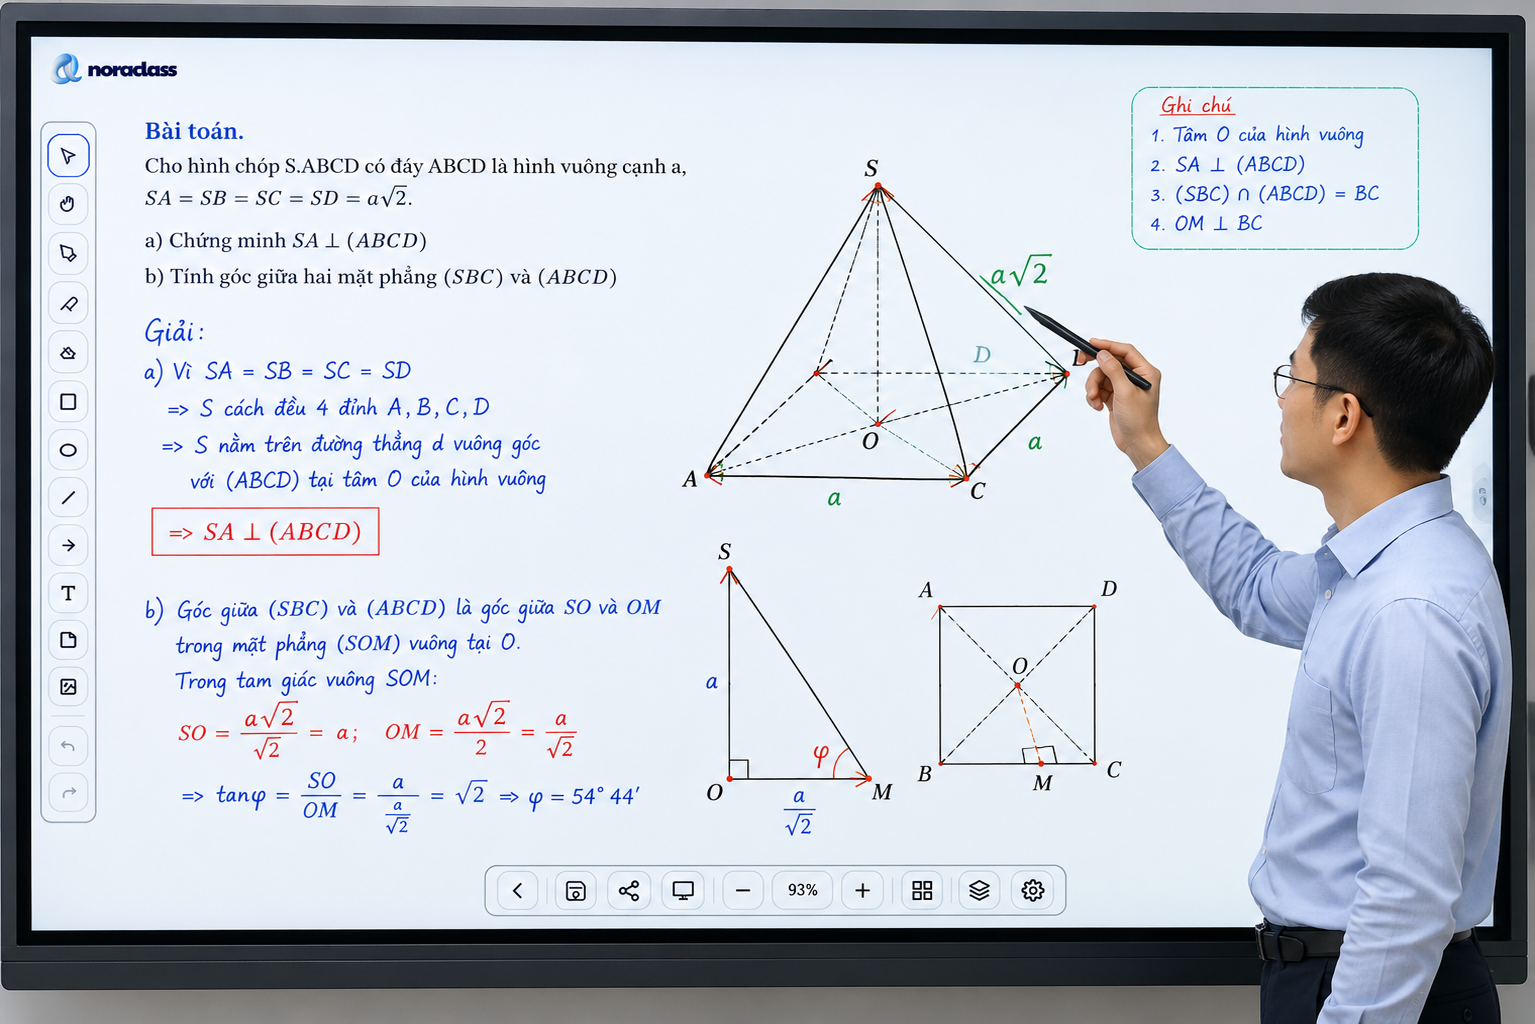 noraclass
Bài toán.
Cho hình chóp S.ABCD có đáy ABCD là hình vuông cạnh a,
SA = SB = SC = SD = a√2.
a) Chứng minh SA ⊥ (ABCD)
b) Tính góc giữa hai mặt phẳng (SBC) và (ABCD)
Giải:
a) Vì SA = SB = SC = SD
=> S cách đều 4 đỉnh A, B, C, D
=> S nằm trên đường thẳng d vuông góc
với (ABCD) tại tâm O của hình vuông
=> SA ⊥ (ABCD)
b) Góc giữa (SBC) và (ABCD) là góc giữa SO và OM
trong mặt phẳng (SOM) vuông tại O.
Trong tam giác vuông SOM:
SO = a√2/√2 = a; OM = a√2/2 = a/√2
=> tanφ = SO/OM = a/(a/√2) = √2 => φ = 54° 44'
S
a√2
D
O
a
A
C
a
S
a
φ
O
M
a/√2
A
D
O
B
M
C
Ghi chú
1. Tâm O của hình vuông
2. SA ⊥ (ABCD)
3. (SBC) ∩ (ABCD) = BC
4. OM ⊥ BC
T
93%